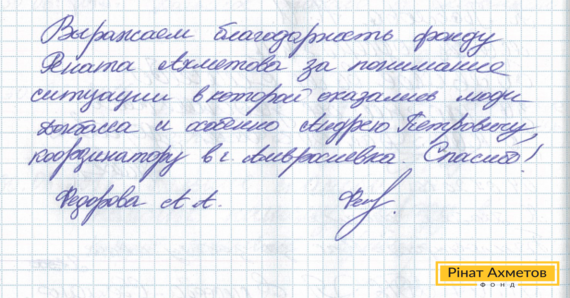 Выражаем благодарность фонду
Рината Ахметова за понимание
ситуации в которой оказались люди
Донбасса и особенно Андрею Петровичу,
координатору в г. Амвросиевка. Спасибо!
Федорова А А.
Рінат Ахметов
ФОНД